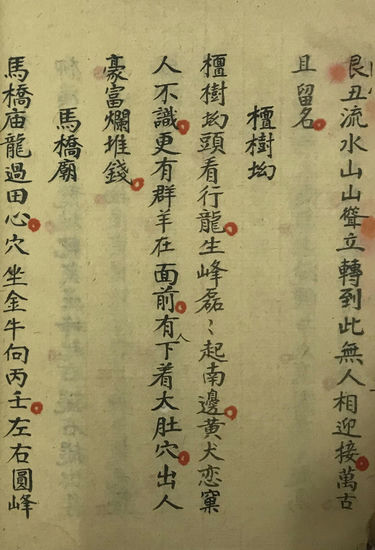 艮丑流水山山聳立轉到此無人相迎接萬古
且留名
檀樹坳
檀樹坳頭看行龍生峰磊〻起南邊黄犬恋窠
人不識更有群羊在面前有人下着大肚穴出人
豪富爛堆錢
馬橋廟
馬橋庙龍過田心穴坐金牛向丙壬左右圓峰